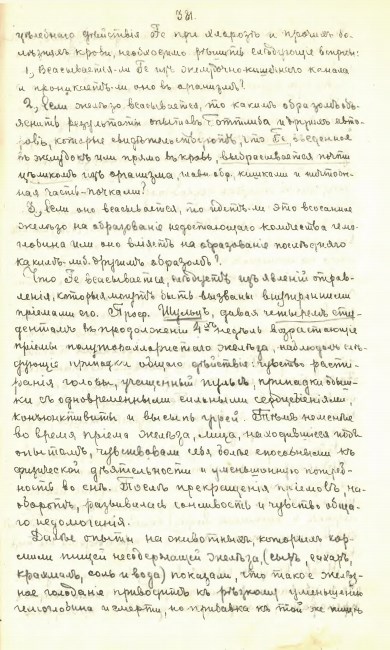 381.
цѣлебнаго дѣйствія Fe при хлорозѣ и прочихъ бо-
лѣзняхъ крови, необходимо рѣшить слѣдующіе вопросы:
1, Всасывается-ли Fe изъ желудочно-кишечнаго канала
и проникаетъ-ли оно въ организмъ?
2, Если желѣзо всасывается, то какимъ образомъ объ-
яснить результаты опытовъ Готтлиба и другихъ авто-
ровъ, которые свидѣтельствуютъ, что Fe, введенное
въ желудокъ или прямо въ кровь, выбрасывается почти
цѣликомъ изъ организма, главн. обр. кишками и ничтож-
ная часть почками?
3, Если оно всасывается, то идетъ-ли это всосанное
желѣзо на образованіе недостающаго количества гемо-
глобина или оно вліяетъ на образованіе послѣдняго
какимъ-либ. другимъ образомъ?
Что Fe всасывается, слѣдуетъ изъ явленій отрав-
ленія, которыя могутъ быть вызваны внутренними
пріемами его. Проф. Шульцъ, давая четыремъ сту-
дентамъ въ продолженіи 4хъ недѣль возрастающіе
пріемы полуторахлористаго желѣза, наблюдалъ слѣ-
дующіе припадки общаго дѣйствія: чувство распи-
ранія головы, учащенный пульсъ, припадки
съ одновременными сильными сердцебіеніями,
конъюнктивитъ и высыпь угрей. Тѣмъ не менѣе
во время пріема желѣза, лица, находившіяся подъ
опытомъ, чувствовали себя болѣе способными къ
физической дѣятельности и уменьшенную потреб-
ность во снѣ. Послѣ прекращенія пріемовъ, на-
оборотъ, развивалась сонливость и чувство обща-
го недомоганія.
Далѣе опыты на животныхъ, которыхъ кор-
мили пищей несодержащей желѣза, (сыръ, сахаръ,
крахмалъ, соль и вода) показали, что такое желѣз-
ное голоданіе приводитъ къ рѣзкому уменьшенію
гемоглобина и смерти, но прибавка къ той же пищѣ